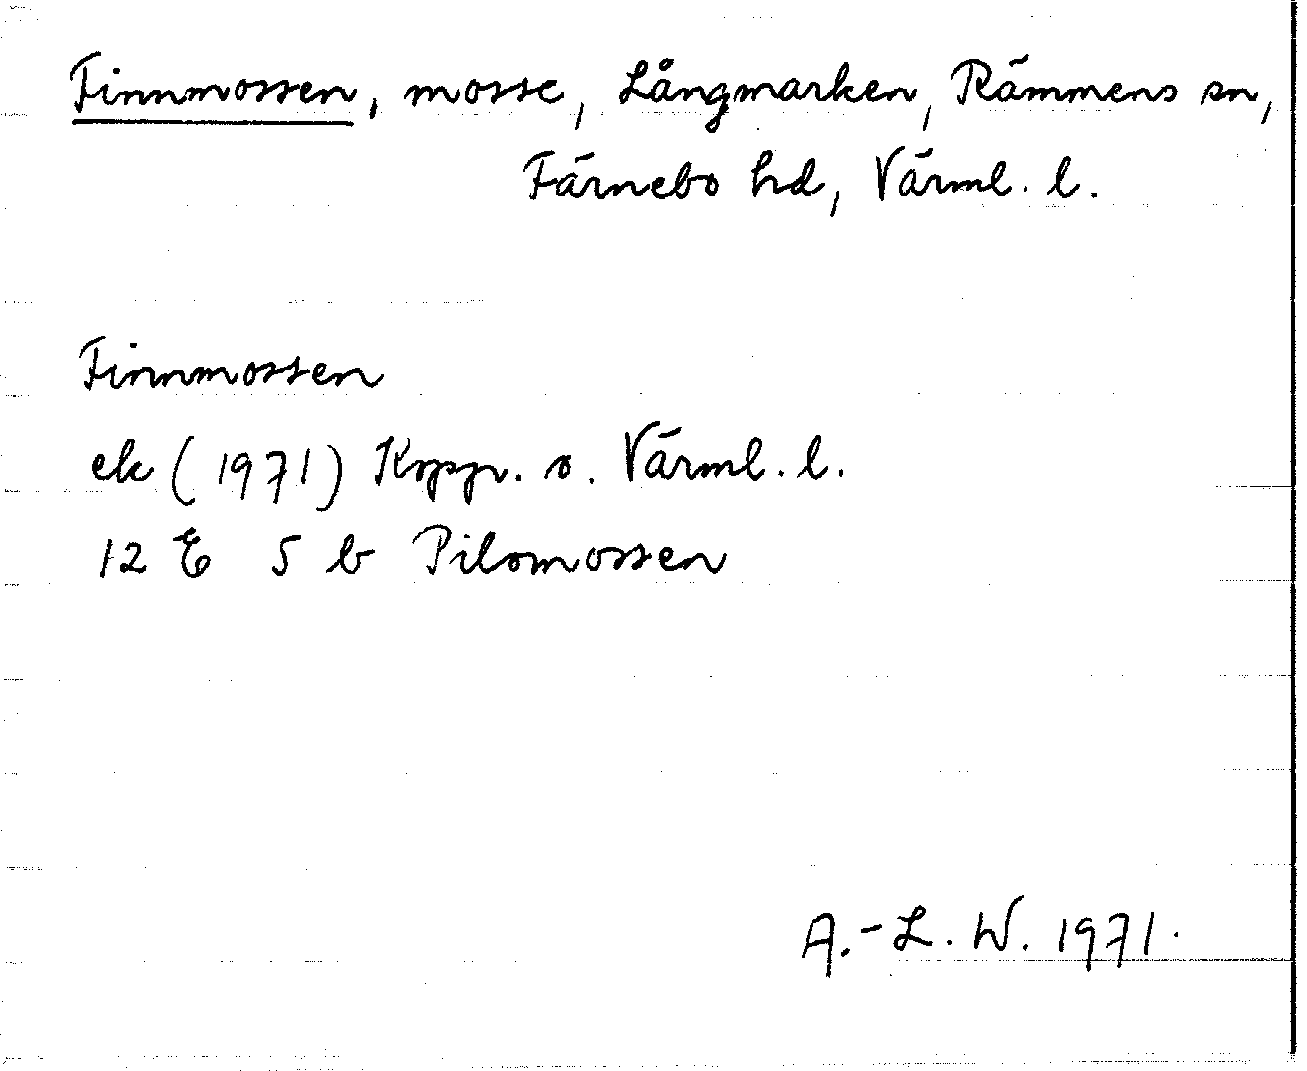 Finnmossen, mosse, Långmarken, Rämmens sn,
Färnebo hd, Värml. l.
Finnmossen
ek (1971) Kopp. o. Värml. l.
12 E 5 b Pilomossen
A.-L. W. 1971.